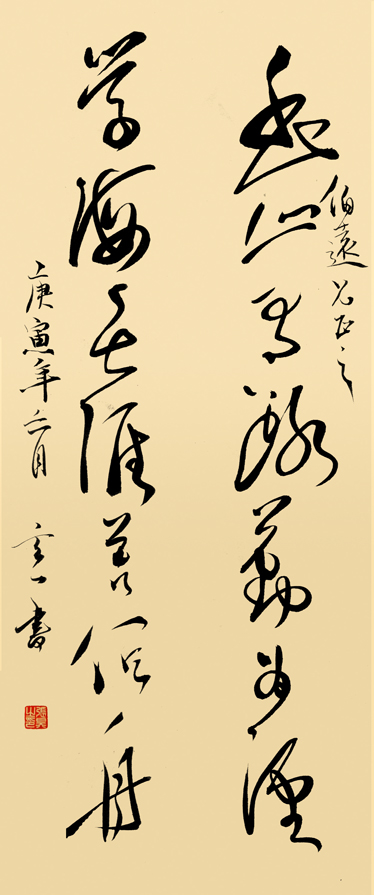 伯遠兄正之
书山有路勤为径
学海无涯苦作舟
庚寅年月
一書